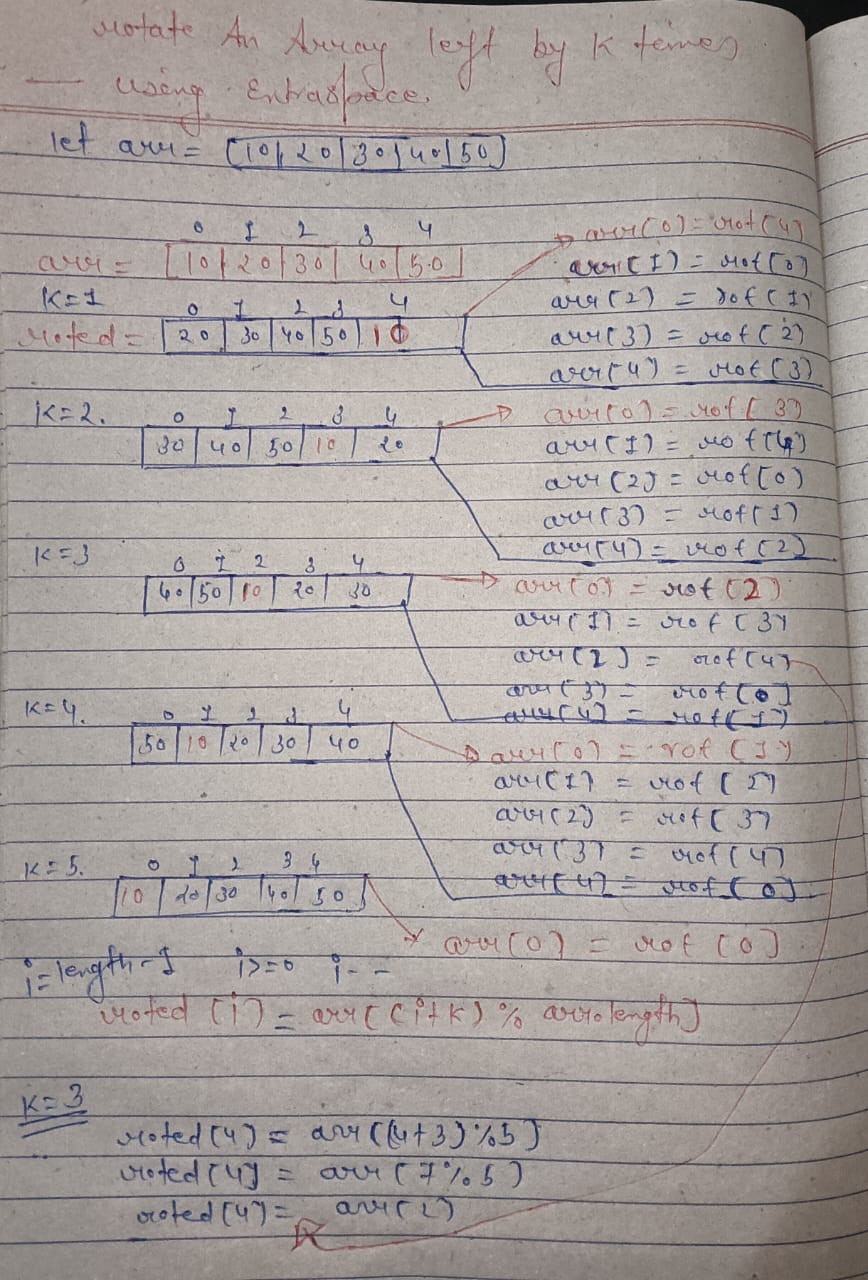 rotate An Array left by K times
— using Extraspace.
let arr = [10|20|30|40|50]
0 1 2 3 4
arr = [10|20|30|40|50]
K=1
0 1 2 3 4
roted = [20|30|40|50|10]
arr[0] = rot[4]
arr[1] = rot[0]
arr[2] = rot[1]
arr[3] = rot[2]
arr[4] = rot[3]
K=2.
0 1 2 3 4
30|40|50|10|20
arr[0] = rot[3]
arr[1] = rot[4]
arr[2] = rot[0]
arr[3] = rot[1]
arr[4] = rot[2]
K=3
0 1 2 3 4
40|50|10|20|30
arr[0] = rot[2]
arr[1] = rot[3]
arr[2] = rot[4]
arr[3] = rot[0]
arr[4] = rot[1]
K=4.
0 1 2 3 4
50|10|20|30|40
arr[0] = rot[1]
arr[1] = rot[2]
arr[2] = rot[3]
arr[3] = rot[4]
arr[4] = rot[0]
K=5.
0 1 2 3 4
10|20|30|40|50
arr[0] = rot[0]
i=length-1 i>=0 i--
roted[i] = arr[(i+K) % arr.length]
K=3
roted[4] = arr[(4+3)%5]
roted[4] = arr[7%5]
roted[4] = arr[2]